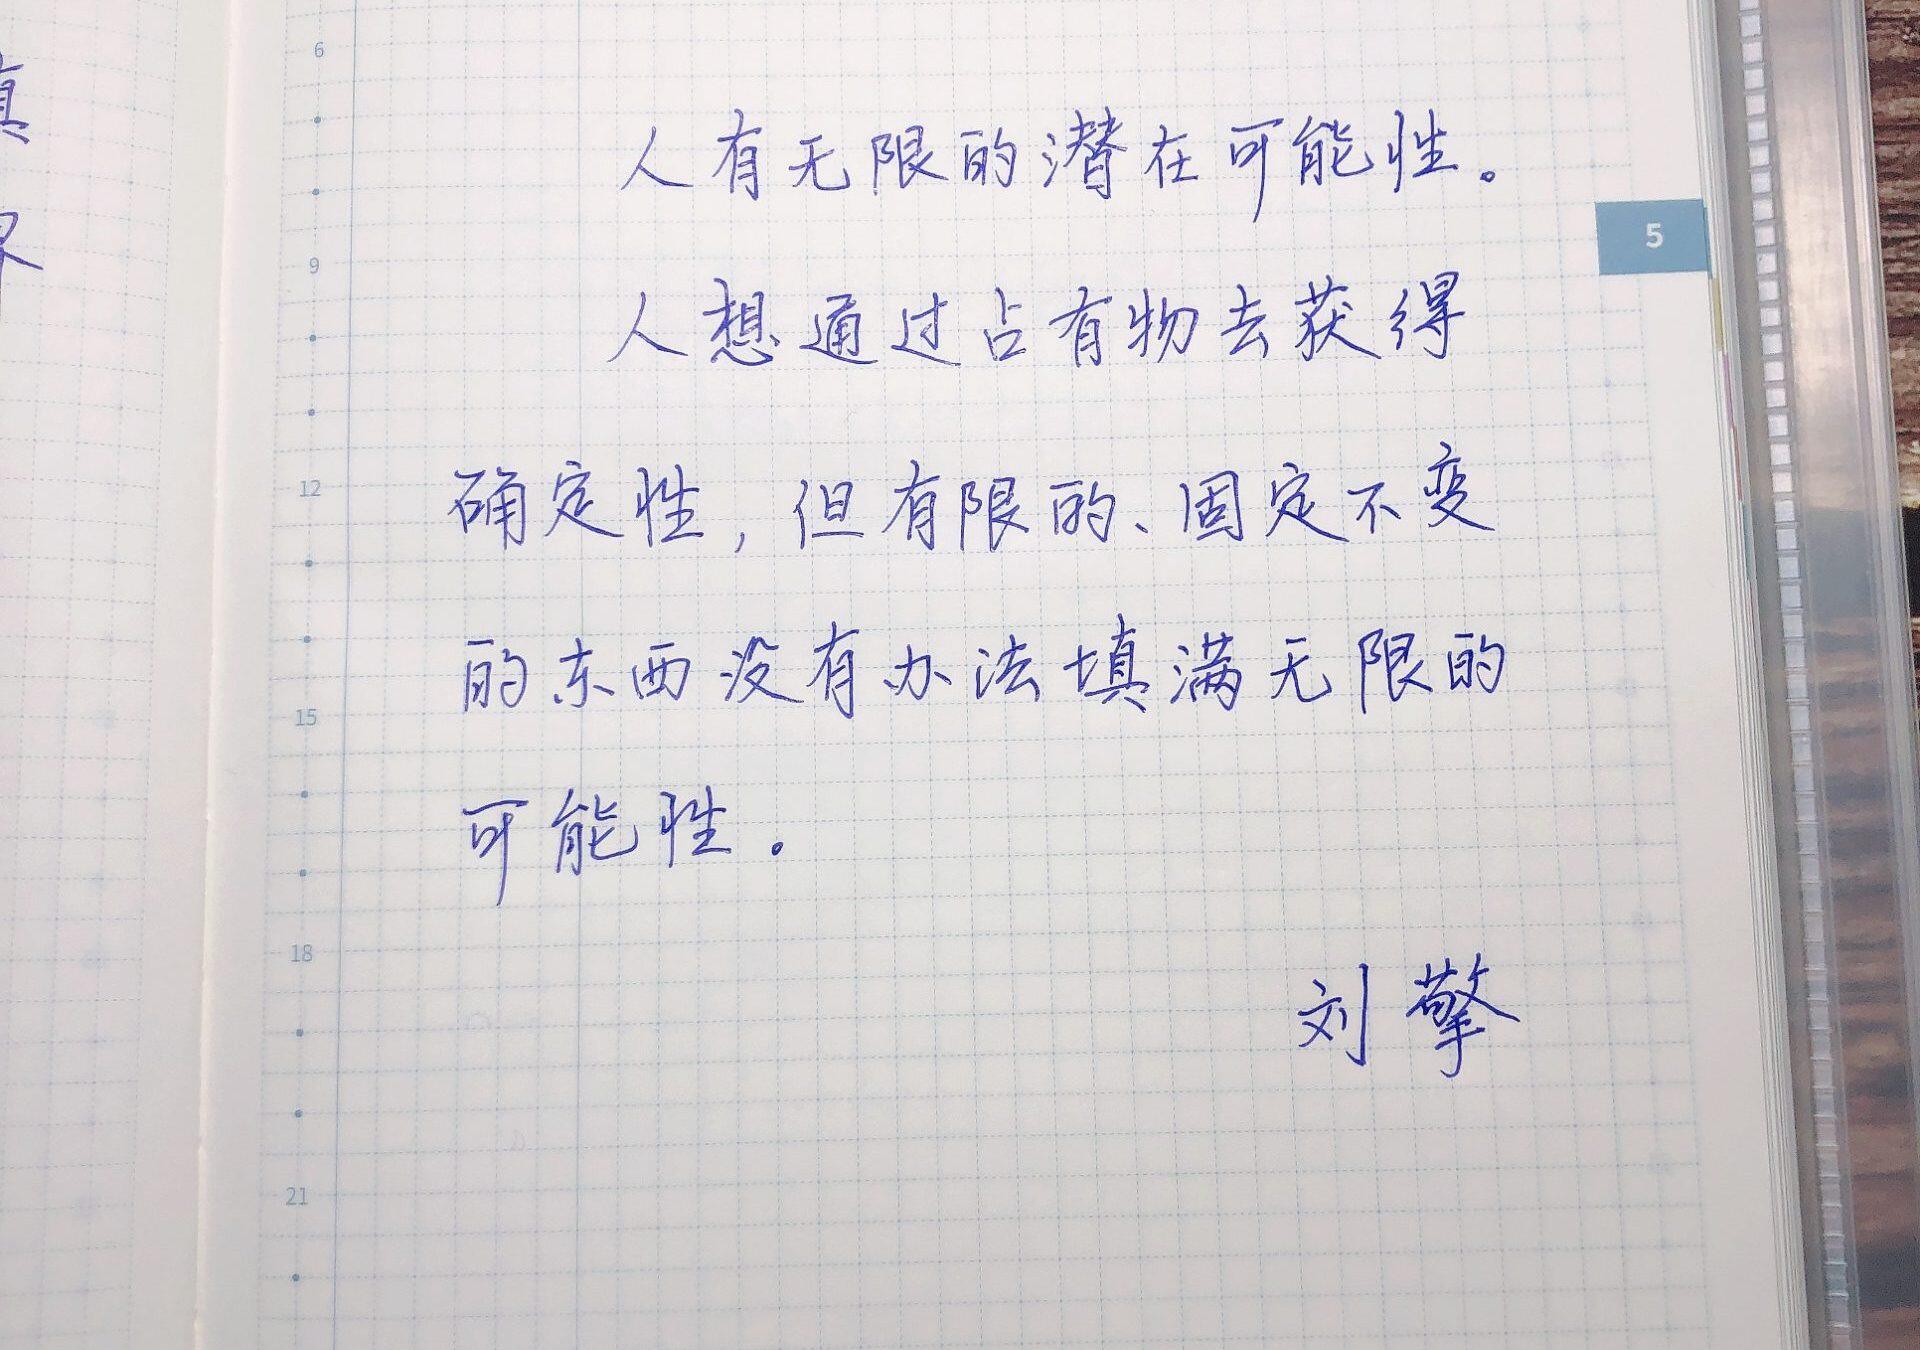 真
界
6
人有无限的潜在可能性。
5
9
人想通过占有物去获得
12
确定性，但有限的、固定不变
的东西没有办法填满无限的
15
可能性。
18
刘擎
21